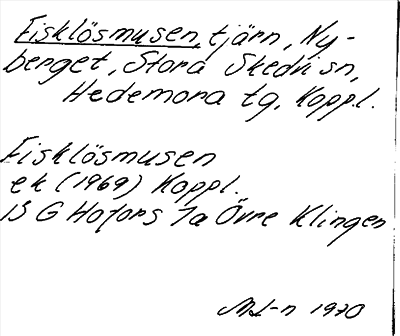 Fisklösmusen, tjärn, Ny-
berget, Stora Skedvi sn,
Hedemora tg, Koppl.
Fisklösmusen
ek (1969) Koppl.
13 G Hofors 7a Övre Klingen
ML-n 1970